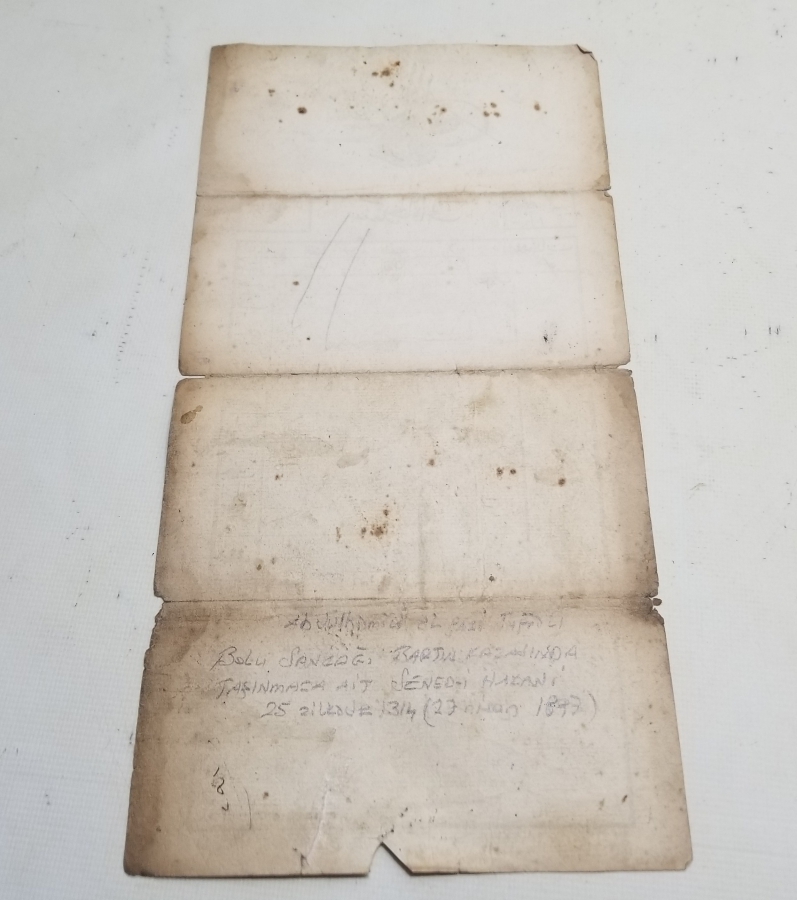 Abdülhamid el Gazi Tuğralı
BOLU SANCAĞI BARTIN KAZASINDA
TAŞINMAZA AİT SENED-İ HAKANİ
25 zilkade 1314 (27 nisan 1897)